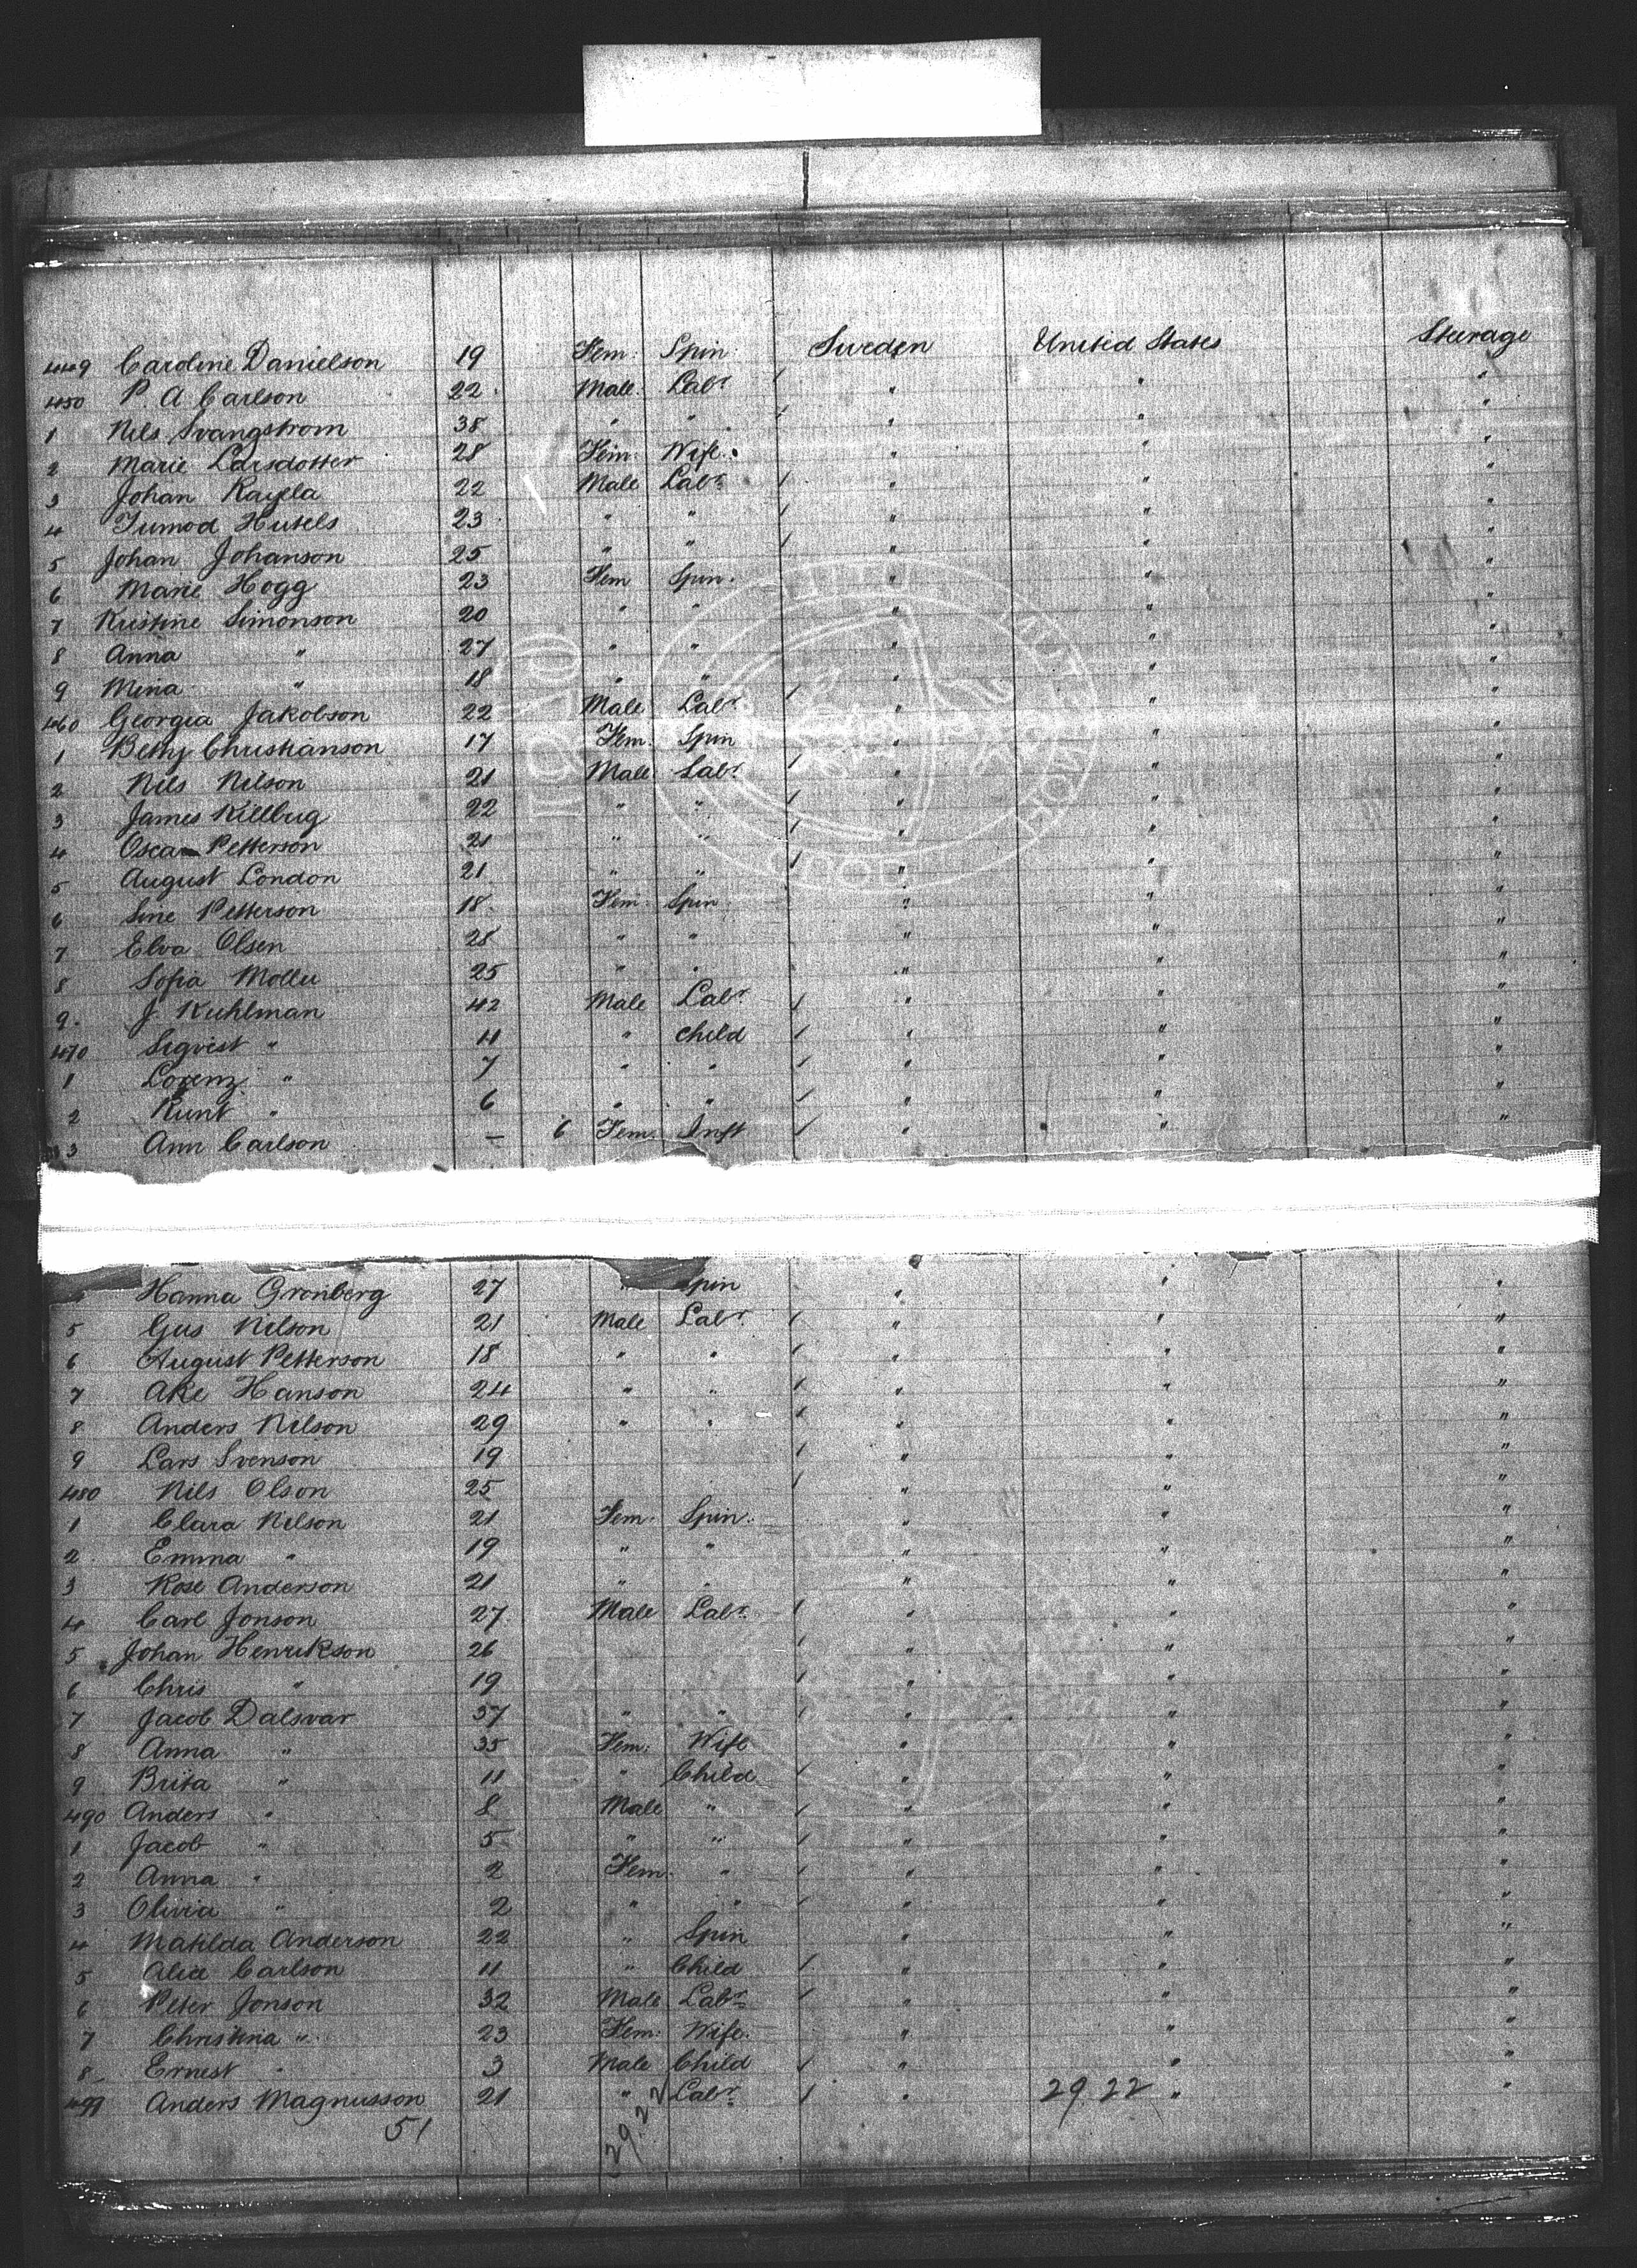 449 Caroline Danielson 19 Fem: Spin: Sweden United States Steerage
450 P. A Carlson 22 Male. Labr / " " "
1 Nils Svangstrom 38 " " / " " "
2 Marie Larsdotter 28 Fem: Wife. " " "
3 Johan 22 Male Labr / " " "
4 23 " " / " " "
5 Johan Johanson 25 " " / " " "
6 Marie Hogg 23 Fem Spin. " " "
7 Kristine Simonson 20 " " " " "
8 Anna " 27 " " " " "
9 Mina " 18 " " " " "
460 Georgia Jakobson 22 Male Labr / " " "
1 Betty Christianson 17 Fem. Spin " " "
2 Nils Nilson 21 Male Labr / " " "
3 James Killbug 22 " " / " " "
4 Oscar Petterson 21 " " / " " "
5 August London 21 " " / " " "
6 Sine Petterson 18 Fem. Spin " " "
7 Elva Olsen 28 " " " " "
8 Sofia 25 " " " " "
9. J. Kuhlman 42 Male Labr / " " "
470 Sigvist " 11 " Child / " " "
1 Lorenz " 7 " " / " " "
2 Kunt " 6 " " / " " "
3 Ann Carlson – 6 Fem. Inft / " " "
Hanna Gronberg 27 " Spin " " "
5 Gus Nilson 21 Male Labr. / " " "
6 August Petterson 18 " " / " " "
7 Ake Hanson 24 " " / " " "
8 Anders Nilson 29 " " / " " "
9 Lars Svenson 19 / " " "
480 Nils Olson 25 / " " "
1 Clara Nilson 21 Fem. Spin. " " "
2 Emma " 19 " " " " "
3 Rose Anderson 21 " " " " "
4 Carl Jonson 27 Male Labr. / " " "
5 Johan Henrikson 26 / " " "
6 Chris " 19 / " " "
7 Jacob Dalsvar 37 " " / " " "
8 Anna " 35 Fem. Wife " " "
9 Brita " 11 " Child / " " "
490 Anders " 8 Male " / " " "
1 Jacob " 5 " " / " " "
2 Anna " 2 Fem. " / " " "
3 Olivia " 2 " " / " " "
4 Matilda Anderson 22 " Spin " " "
5 Alice Carlson 11 " Child / " " "
6 Peter Jonson 32 Male Labr / " " "
7 Christina " 23 Fem: Wife. " " "
8 Ernest " 3 Male Child / " " "
499 Anders Magnusson 21 " Labr / " 29.22 " "
51 29.22